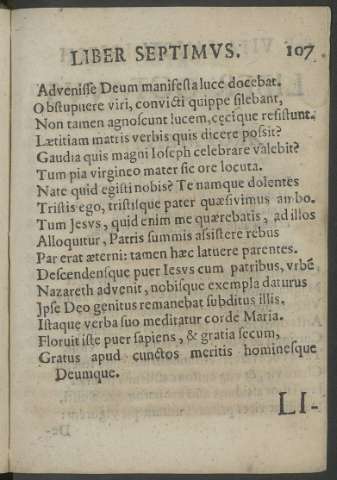 LIBER SEPTIMVS. 107
Advenisse Deum manifesta luce docebat.
Obstupuere viri, convicti quippe silebant,
Non tamen agnoscunt lucem, cęcique resistunt.
Lætitiam matris verbis quis dicere possit?
Gaudia quis magni Ioseph celebrare valebit?
Tum pia virgineo mater sic ore locuta.
Nate quid egisti nobis? Te namque dolentes
Tristis ego, tristisque pater quæsivimus ambo.
Tum Jesvs, quid enim me quærebatis, ad illos
Alloquitur, Patris summis assistere rebus
Par erat æterni: tamen hæc latuere parentes.
Descendensque puer Iesvs cum patribus, vrbē
Nazareth advenit, nobisque exempla daturus
Jpse Deo genitus remanebat subditus illis.
Istaque verba suo meditatur corde Maria.
Floruit iste puer sapiens, & gratia secum,
Gratus apud cunctos meritis hominesque
Deumque.
LI-